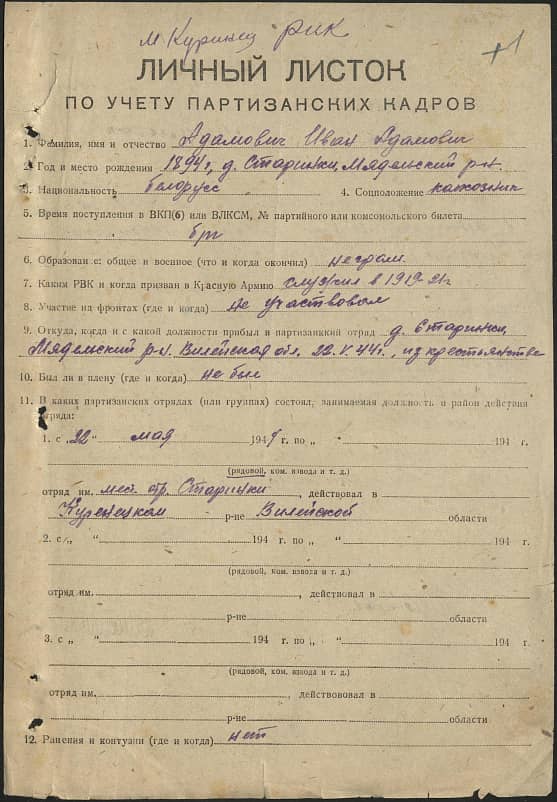 м Куринец РИК
+1
ЛИЧНЫЙ ЛИСТОК
ПО УЧЕТУ ПАРТИЗАНСКИХ КАДРОВ
1. Фамилия, имя и отчество Адамович Иван Адамович
2. Год и место рождения 1894 г, д. Старинки, Мядельский р-н.
3. Национальность белорусс 4. Соцположение колхозник
5. Время поступления в ВКП(б) или ВЛКСМ, № партийного или комсомольского билета
б/п
6. Образование: общее и военное (что и когда окончил) неграм.
7. Каким РВК и когда призван в Красную Армию служил в 1919-21г
8. Участие на фронтах (где и когда) не участвовал
9. Откуда, когда и с какой должности прибыл в партизанский отряд д. Старинки,
Мядельский р-н. Вилейская обл. 22.V.44г., из крестьянства
10. Был ли в плену (где и когда) не был
11. В каких партизанских отрядах (или группах) состоял, занимаемая должность и район действия
отряда:
1. с „22" мая 1944 г. по „ " 194 г.
(рядовой, ком. взвода и т. д.)
отряд им. мест. отр. Старинки, действовал в
Куренецком р-не Вилейской области
2. с „ " 194 г. по „ " 194 г.
(рядовой, ком. взвода и т. д.)
отряд им. , действовал в
р-не области
3. с „ " 194 г. по „ " 194 г.
(рядовой, ком. взвода и т. д.)
отряд им. , действововал в
р-не области
12. Ранения и контузии (где и когда) нет